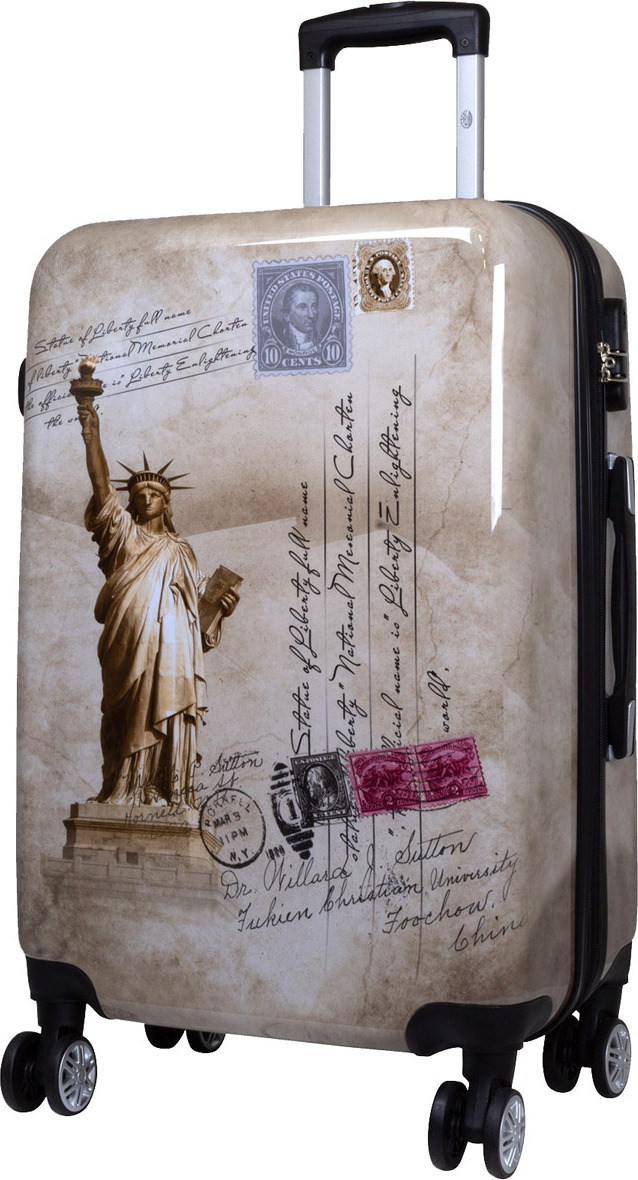 Statue of Liberty full name
of liberty "National Memorial Chorten
the official is" Liberty Enlightening
the
UNITED STATES POSTAGE
10 10
CENTS
Statue of Liberty full name
liberty "National Memorial Chorten
official name is" Liberty Enlightening
world.
U.S. POSTAGE
2 2
Sutton
St
Hornell
HORNELL
MAR 3
11 PM
N.Y.
1
Dr. Willard J. Sutton
Fukien Christian University
Foochow,
China